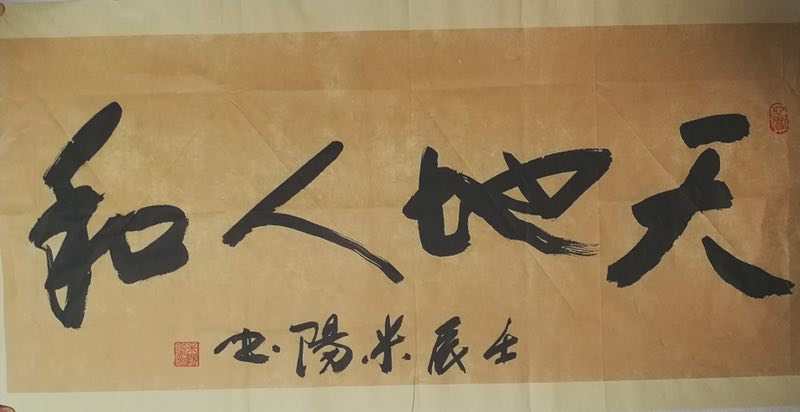 天地人和
壬辰米陽书